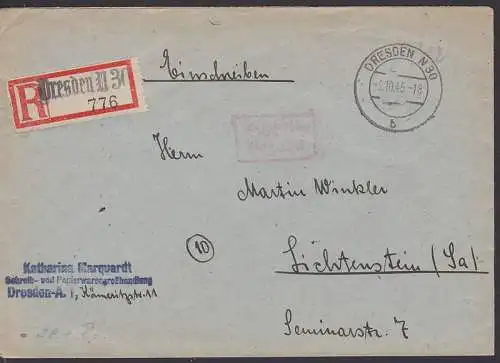 R
Dresden N 30
776
Einschreiben
DRESDEN N30
10.45-18
b
Herrn
Martin Winkler
10
Lichtenstein/(Sa)
Seminarstr. 7
Katharina Marquardt
Schreib- und Papierwarengroßhandlung
Dresden-A. 1, Kämeritzstr. 11